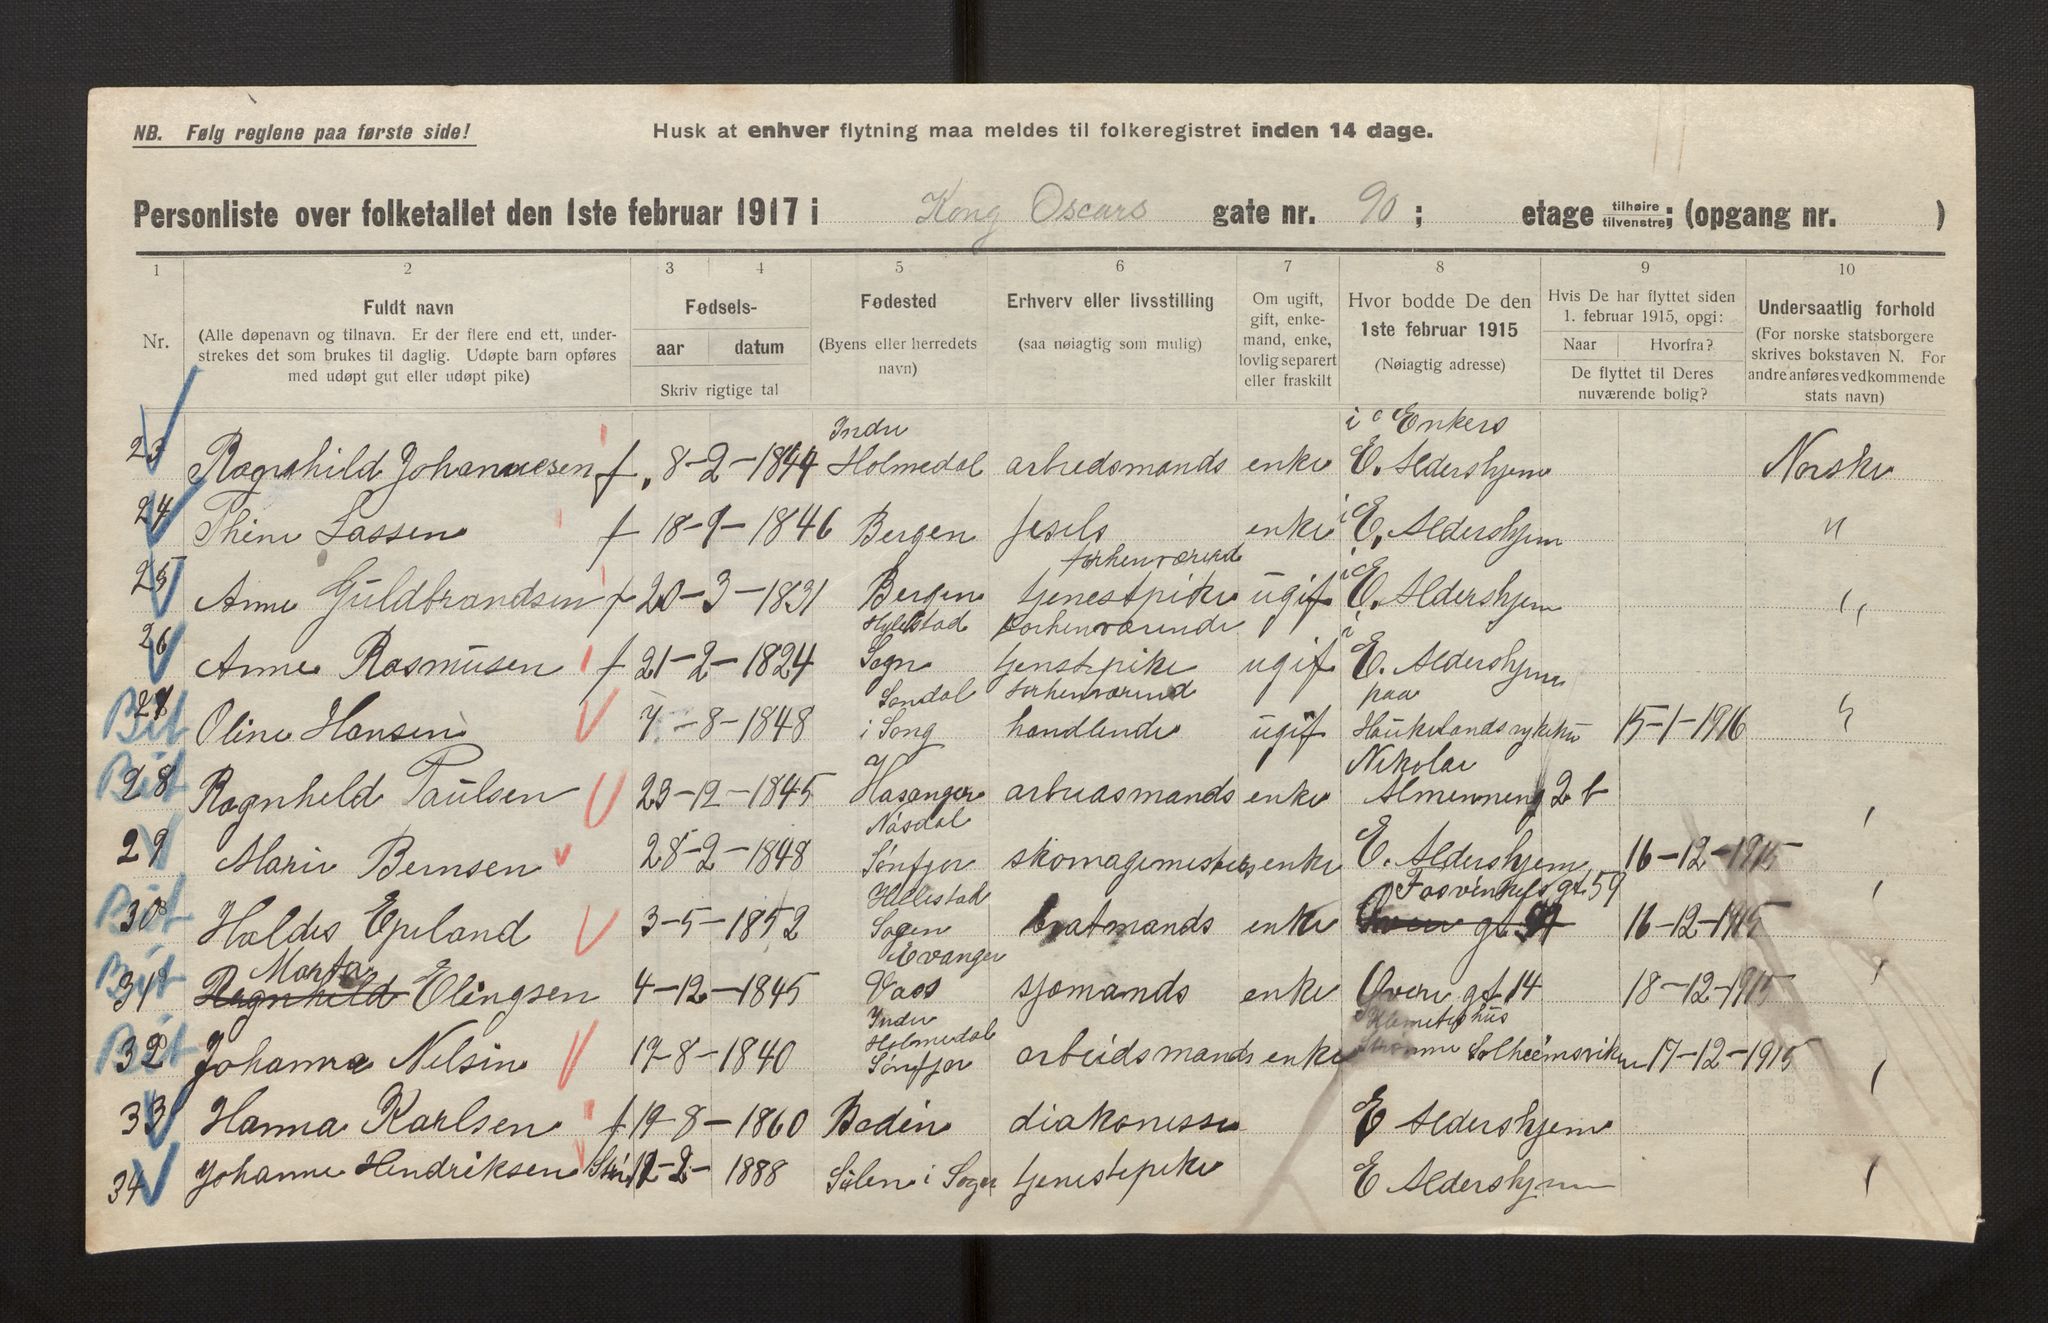 NB. Følg reglene paa første side!
Husk at enhver flytning maa meldes til folkeregistret inden 14 dage.
Personliste over folketallet den 1ste februar 1917 i Kong Oscars gate nr. 90 ; etage tilhøire tilvenstre; (opgang nr. )
1 2 3 4 5 6 7 8 9 10
Nr.
Fuldt navn
(Alle døpenavn og tilnavn. Er der flere end ett, under-
strekes det som brukes til daglig. Udøpte barn opføres
med udøpt gut eller udøpt pike)
Fødsels-
aar datum
Skriv rigtige tal
Fødested
(Byens eller herredets
navn)
Erhverv eller livsstilling
(saa nøiagtig som mulig)
Om ugift,
gift, enke-
mand, enke,
lovlig separert
eller fraskilt
Hvor bodde De den
1ste februar 1915
(Nøiagtig adresse)
Hvis De har flyttet siden
1. februar 1915, opgi:
Naar Hvorfra?
De flyttet til Deres
nuværende bolig?
Undersaatlig forhold
(For norske statsborgere
skrives bokstaven N. For
andre anføres vedkommende
stats navn)
Indre i Enkers
23 Ragnhild Johannesen f. 8-2-1844 Holmedal arbedsmands enke E. Aldershjem Norske
24 Thine Lassen f 18-9-1846 Bergen enke i E. Aldershjem "
forhenværend
25 Anne Guldbrandsen f 20-3-1831 Bergen tjenestpike ugif i E. Aldershjem "
Hylestad forhenværende i
26 Anne Rasmusen f 21-2-1824 Sogn tjenstpike ugif E. Aldershjem
Sondal forhenværend paa
27 Oline Hansen 7-8-1848 i Song handlende ugif Haukelandssykehu 15-1-1916 "
Nikolai
28 Ragnheld Paulsen 23-12-1845 Hasanger arbeidsmands enke Almenning 2 b
Nåsdal
29 Marie Bernsen 28-2-1848 Sønfjor skomagemesters enke E. Aldershjem 16-12-1915
Hillestad Fosvinkels gt 59
30 Haldis Epeland 3-5-1852 Sogen bratmands enke Øvre gt 16-12-1915
Marta Evanger
31 Ragnhild Elingsen 4-12-1845 Vaos sjømands enke Øvere gt 14 18-12-1915
Indre
Holmedal
32 Johanna Nelsin 17-8-1840 Sønfjor arbeidsmands enke Solheimsviken 17-12-1915
33 Hanna Karlsen f 19-8-1860 Bodin diakonisse E Aldershjem
34 Johanne Hendriksen 12-2-1888 Sulen i Sogen tjenestepike E Aldershjem
Büt
Büt
Büt
Büt
Büt